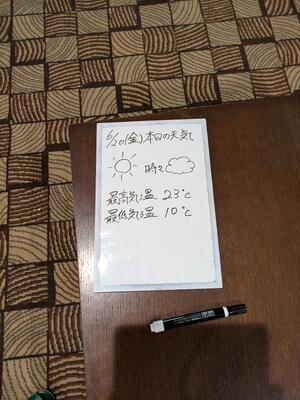 6/20(金)本日の天気
時々
最高気温 23℃
最低気温 10℃